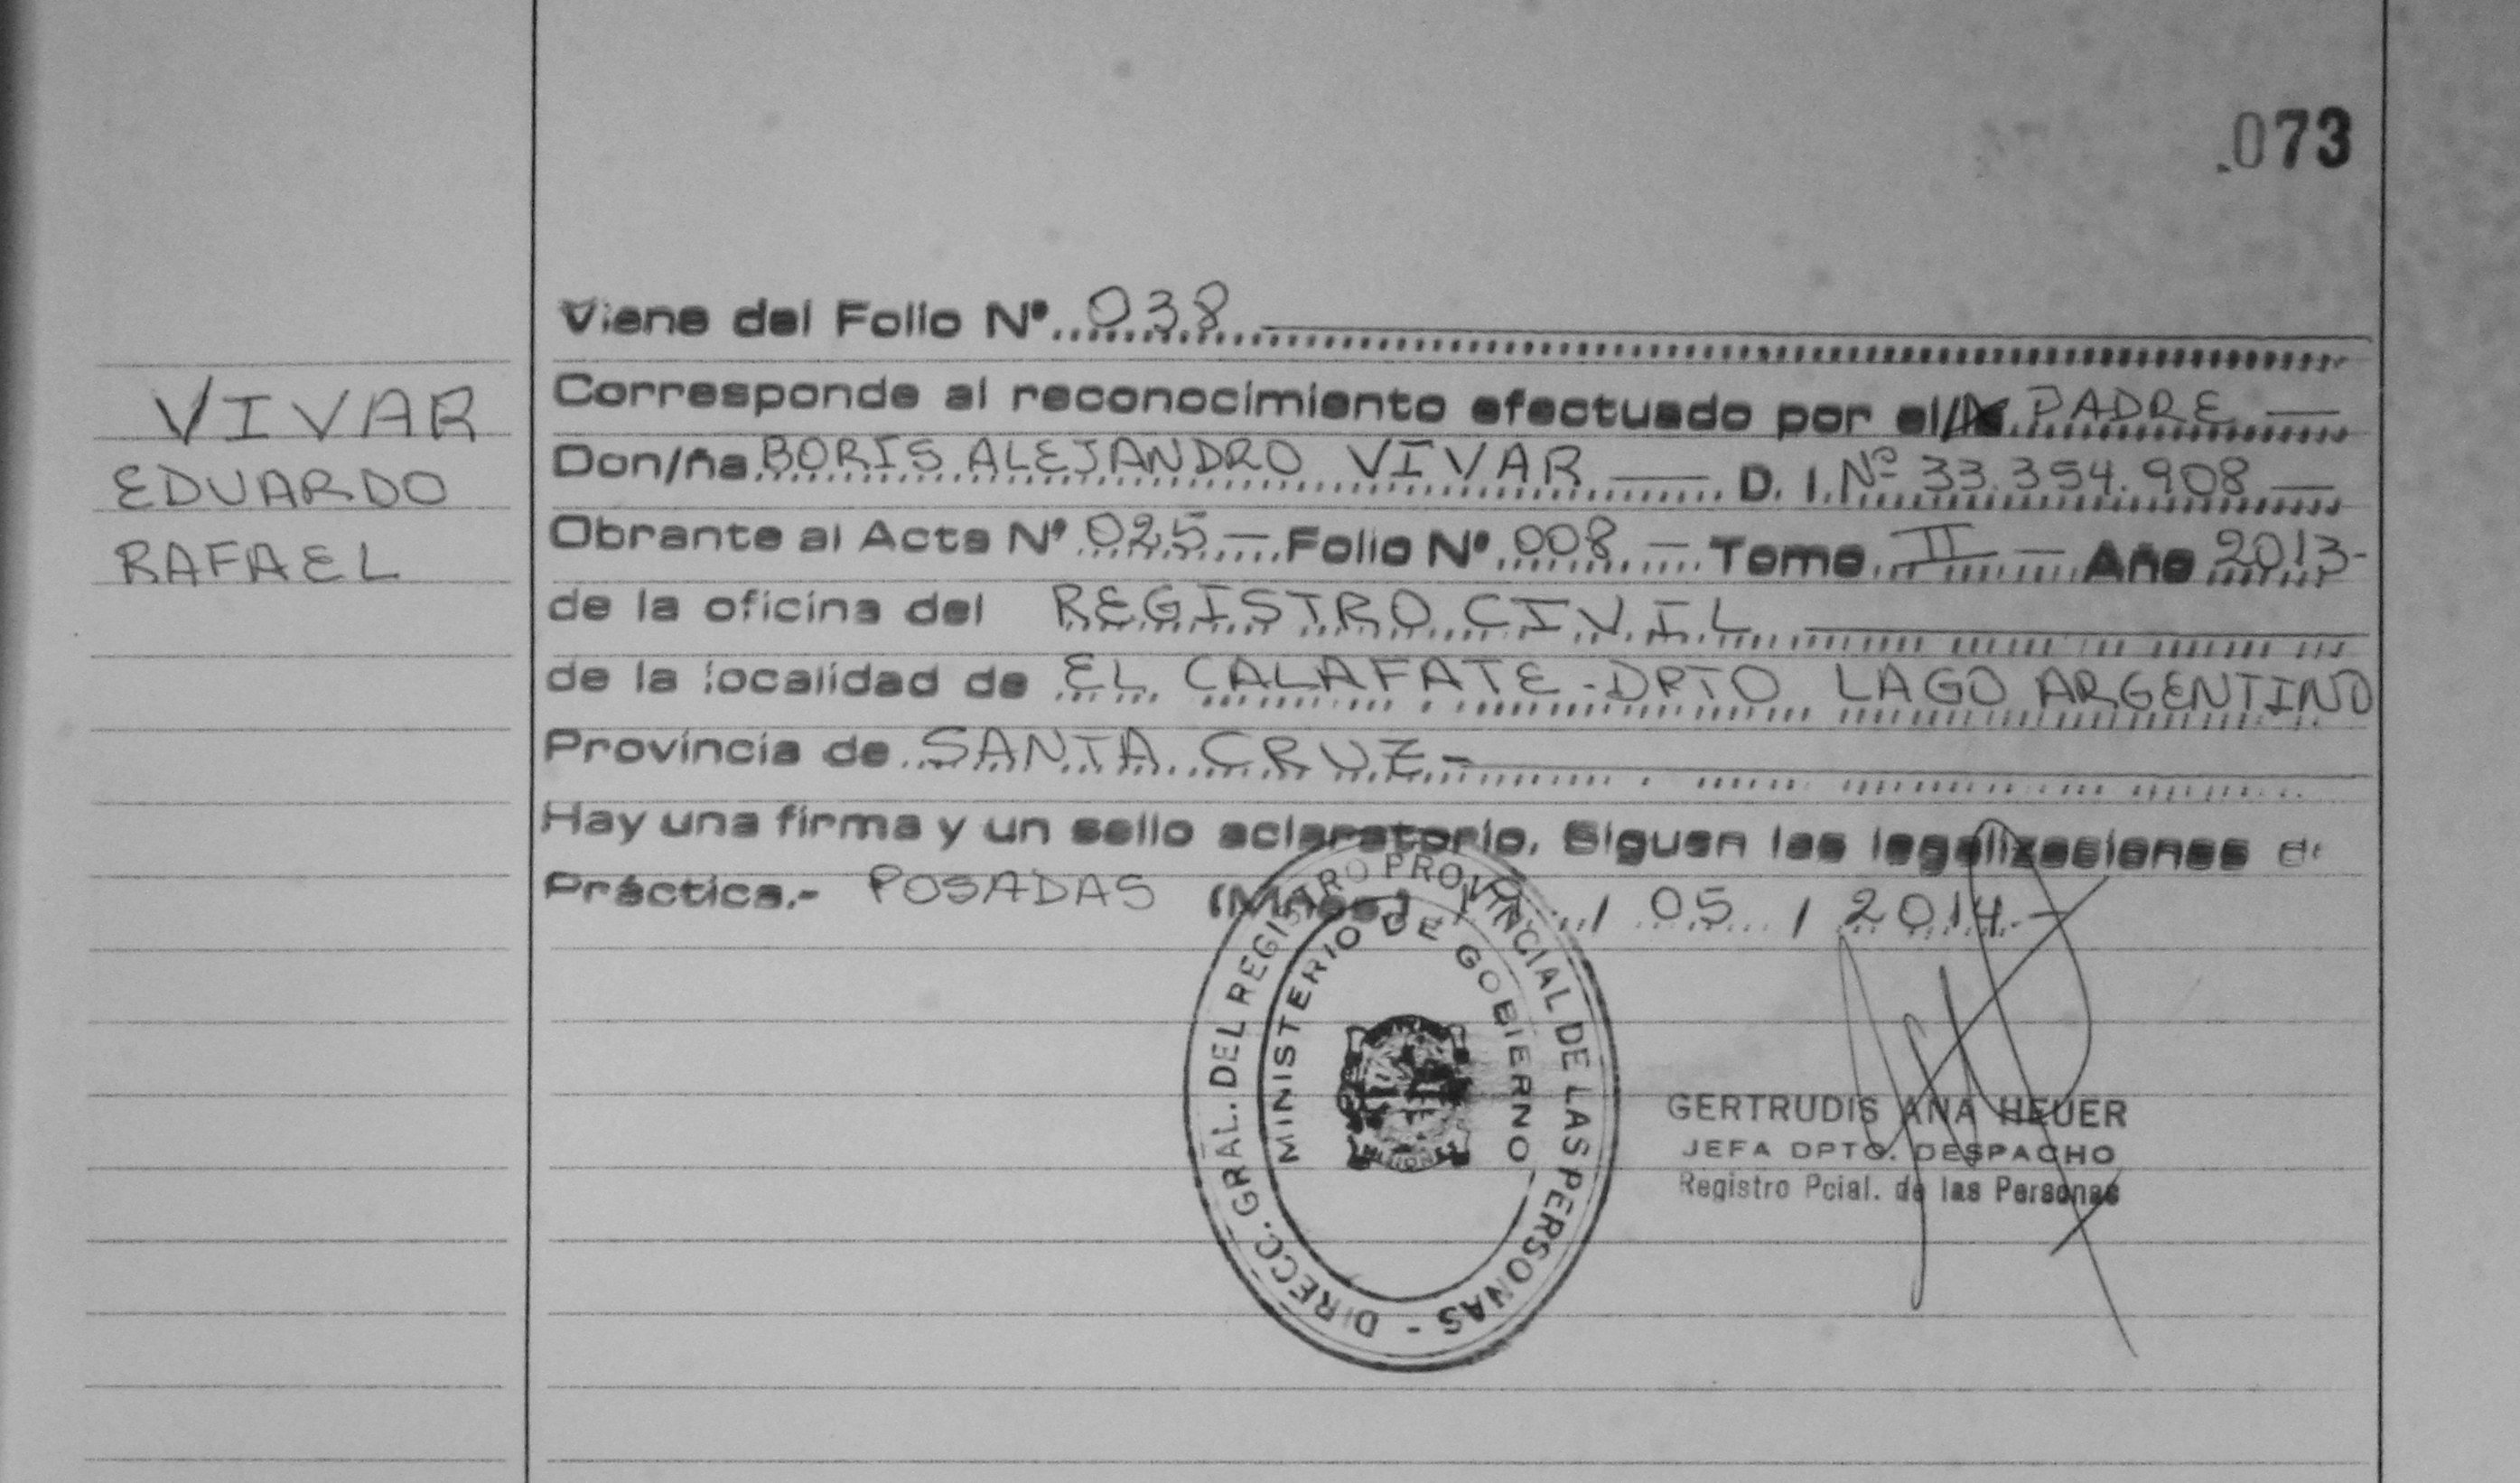 073
Viene del Folio Nº 038
Corresponde al reconocimiento efectuado por el/la PADRE —
VIVAR
Don/ña BORIS ALEJANDRO VIVAR — D. I. Nº 33.354.908 —
EDUARDO
Obrante al Acta Nº 025 — Folio Nº 008 — Tomo II — Año 2013-
RAFAEL
de la oficina del REGISTRO CIVIL
de la localidad de EL CALAFATE - DPTO LAGO ARGENTINO
Provincia de SANTA CRUZ -
Hay una firma y un sello aclaratorio. Siguen las legalizaciones de
Práctica.- POSADAS (Mnes) / 05 / 2014.-
DIRECC. GRAL. DEL REGISTRO PROVINCIAL DE LAS PERSONAS -
MINISTERIO DE GOBIERNO
GERTRUDIS ANA HEUER
JEFA DPTO. DESPACHO
Registro Pcial. de las Personas